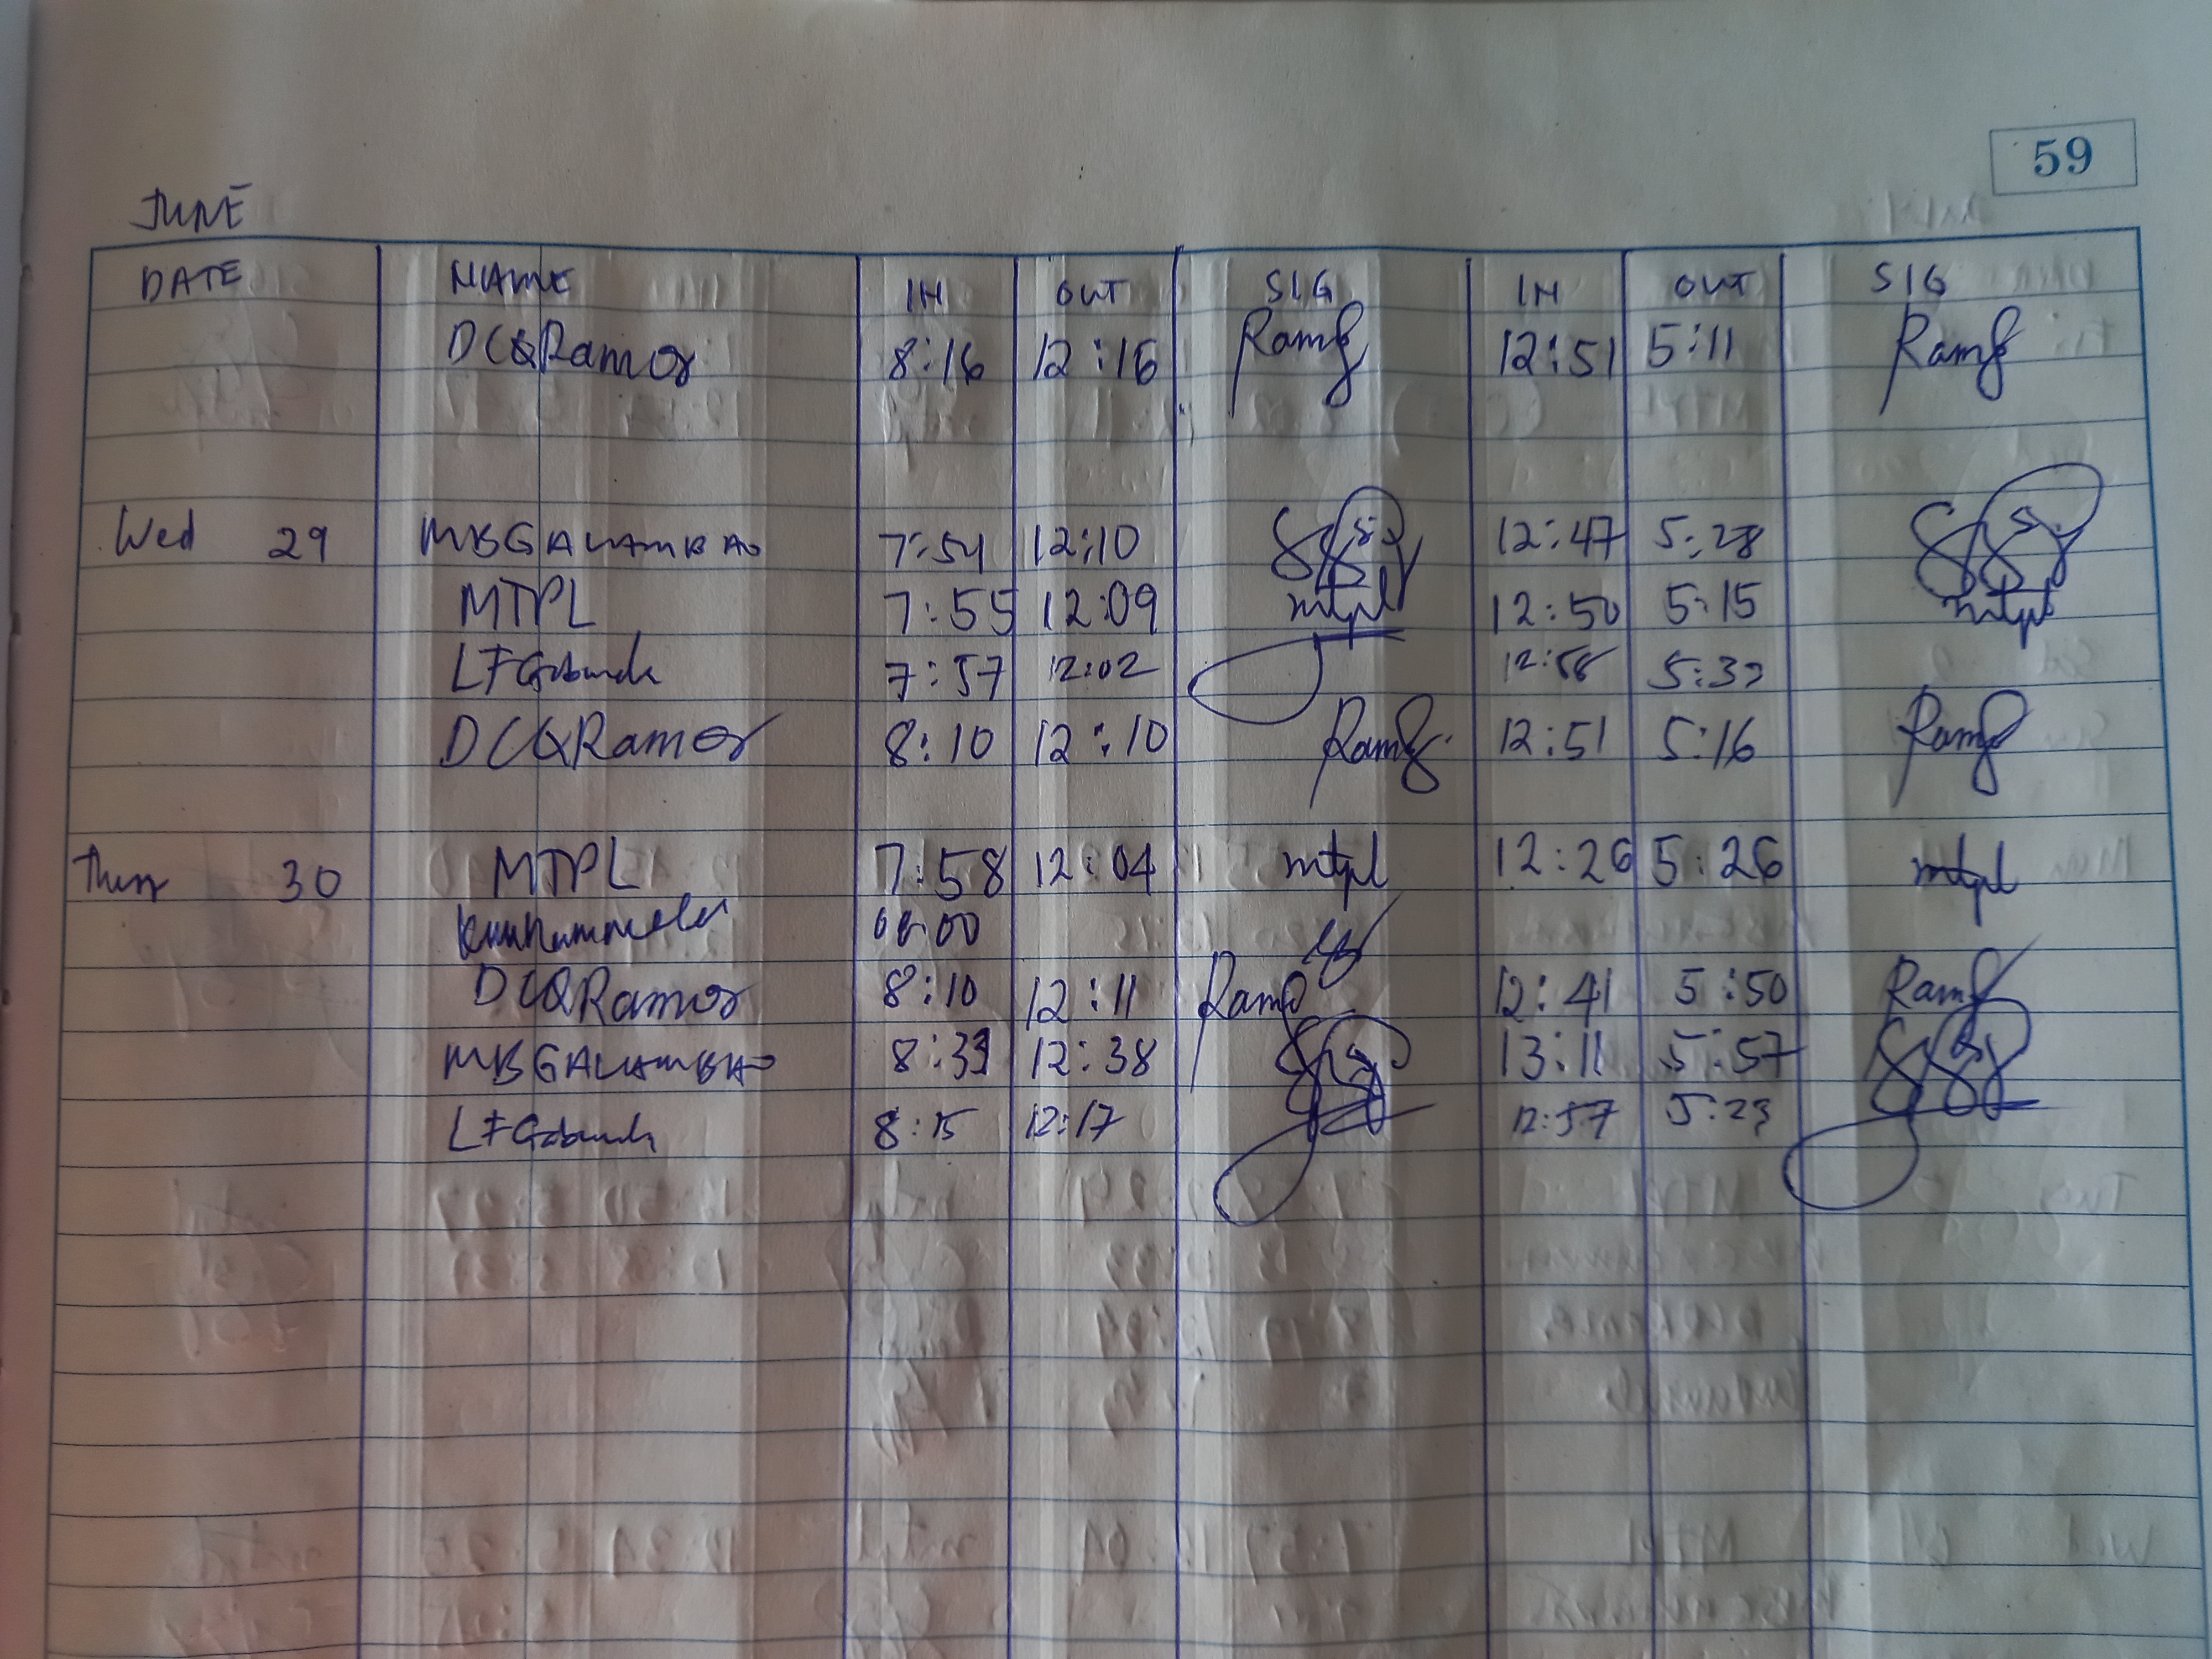 59
JUNE
DATE NAME IN OUT SIG IN OUT SIG
DCQRamos 8:16 12:16 12:51 5:11
Wed 29 MBGALAMBAO 7:54 12:10 12:47 5:28
MTPL 7:55 12:09 mtpl 12:50 5:15 mtpl
7:57 12:02 12:58
DCQRamos 8:10 12:10 12:51 5:16
Thurs 30 MTPL 7:58 12:04 mtpl 12:26 5:26 mtpl
DCQRamos 8:10 12:11 12:41 5:50
MBGALAMBAO 12:38 13:11 5:57
8:15 12:17 12:57 5:23